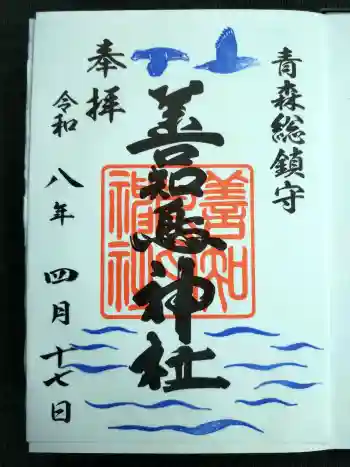 青森総鎮守
善知鳥神社
奉拝
令和八年四月十七日
善知鳥神社